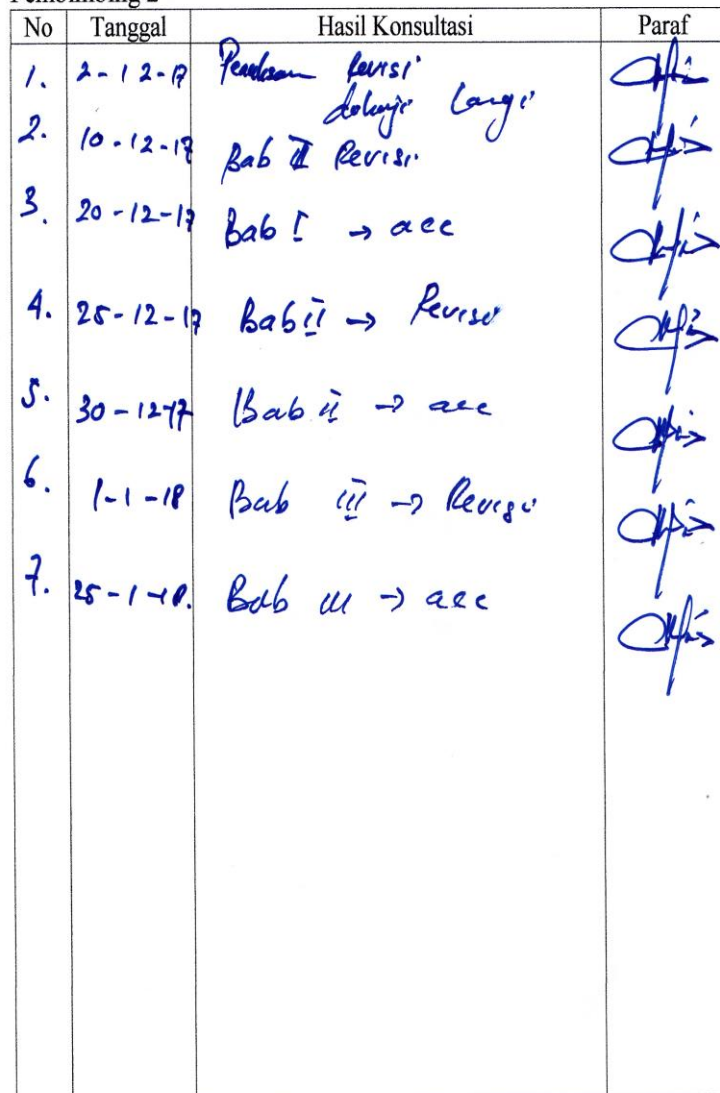 Pembimbing 2
No Tanggal Hasil Konsultasi Paraf
1. 2-12-17 revisi
2. 10-12-17 Bab II Revisi
3. 20-12-17 Bab I → acc
4. 25-12-17 Bab II → Revisi
5. 30-12-17 Bab ii → acc
6. 1-1-18 Bab iii → Revisi
7. 25-1-18. Bab iii → acc